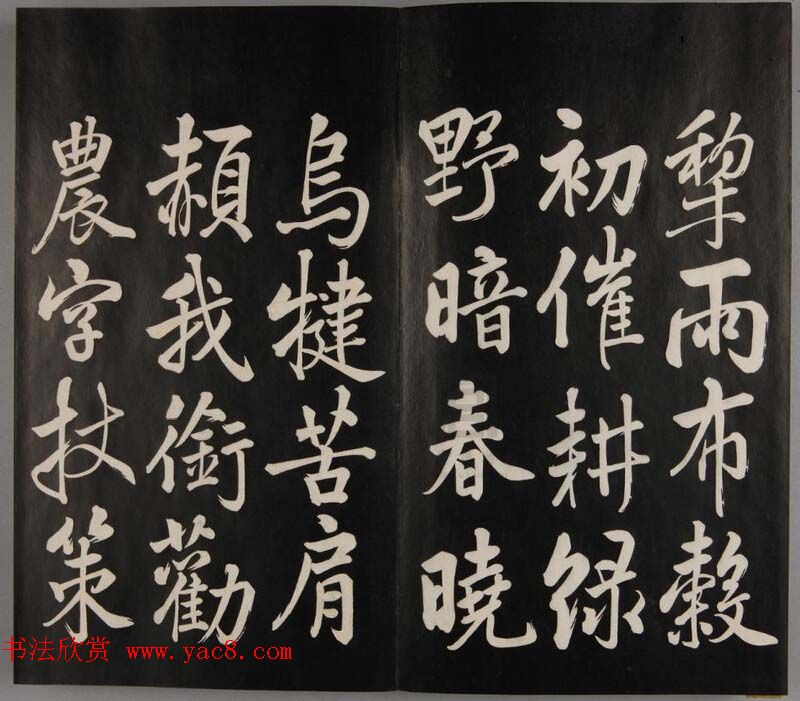 犂雨布穀
初催耕綠
野暗春曉
烏犍苦肩
赬我銜勸
農字扙策
书法欣赏 www.yac8.com